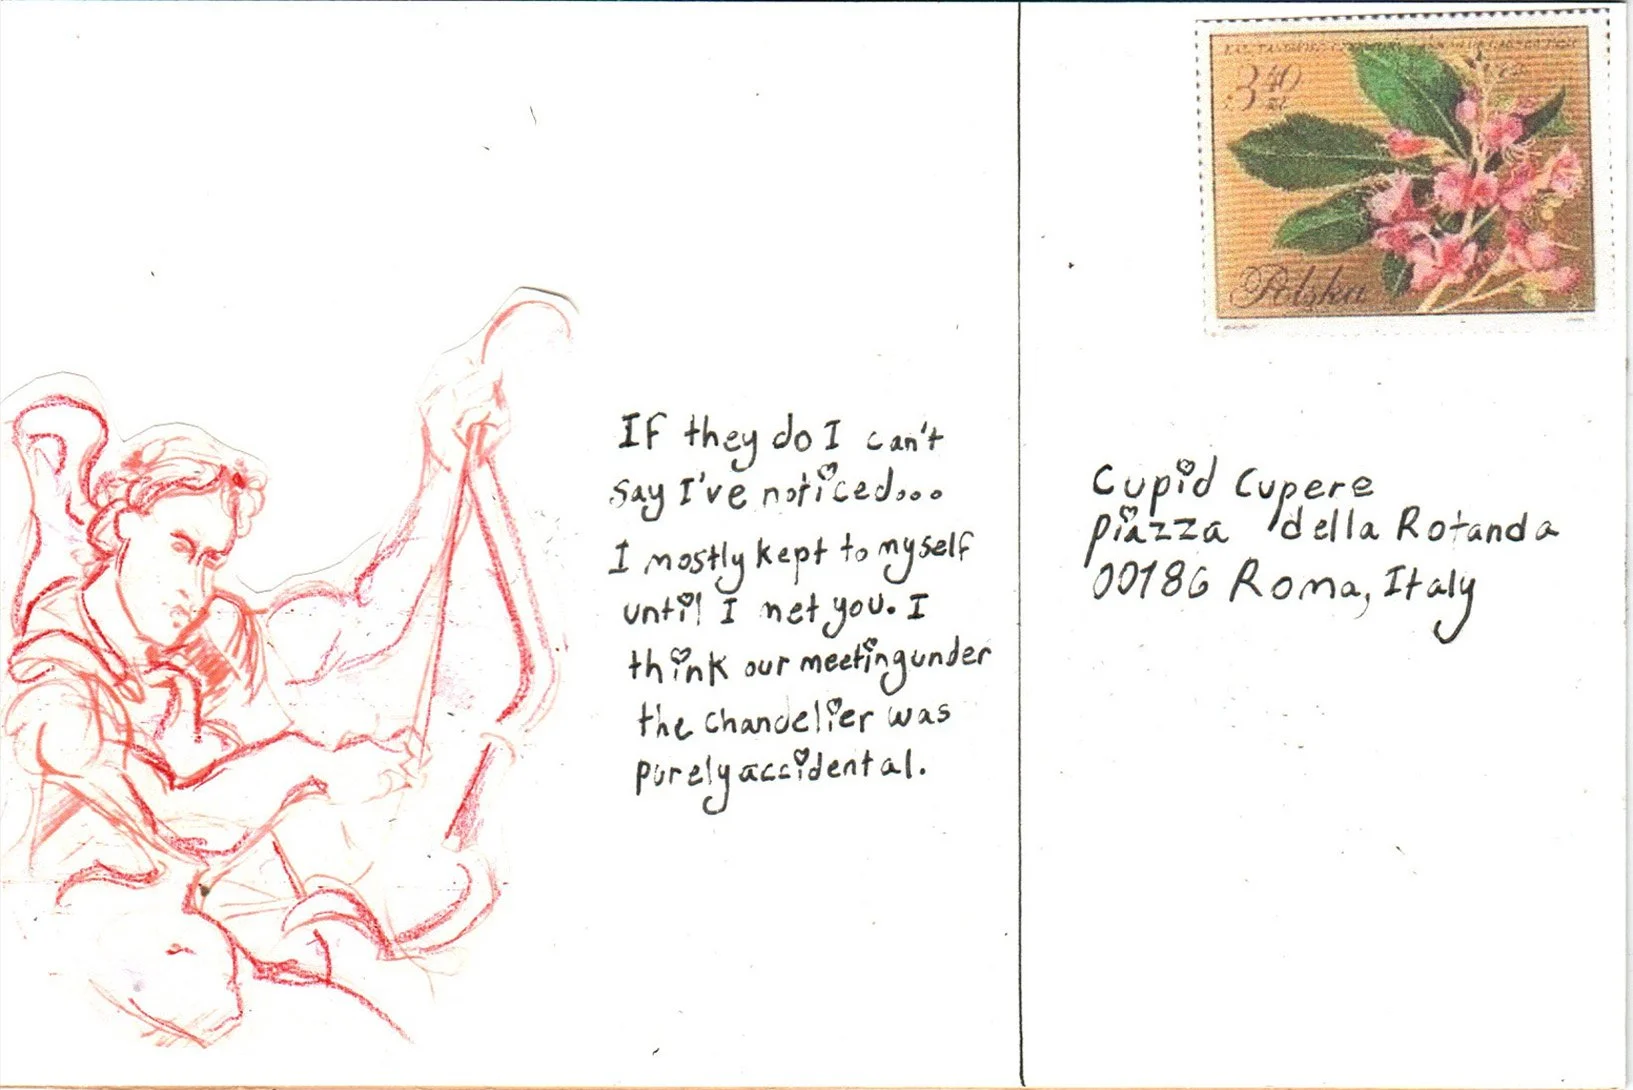 If they do I can't
say I've noticed...
I mostly kept to myself
until I met you. I
think our meeting under
the chandelier was
purely accidental.
3 40
ZŁ
Polska
Cupid Cupere
piazza della Rotanda
00186 Roma, Italy